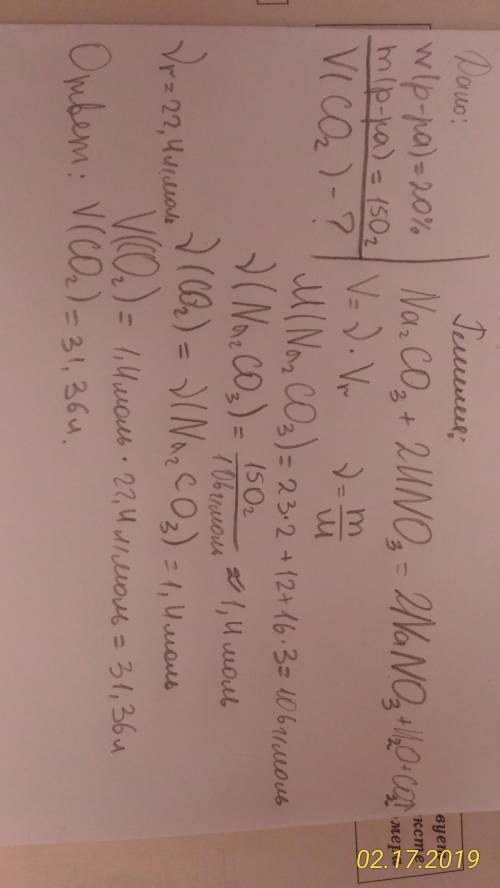 Дано:
w(р-ра) = 20%
m(р-ра) = 150г
V(CO₂) - ?
Решение:
Na₂CO₃ + 2HNO₃ = 2NaNO₃ + H₂O + CO₂↑
V = ν · Vr ν = m/M
M(Na₂CO₃) = 23·2 + 12 + 16·3 = 106 г/моль
ν(Na₂CO₃) = 150г/106г/моль ≈ 1,4 моль
ν(CO₂) = ν(Na₂CO₃) = 1,4 моль
Vr = 22,4 л/моль
V(CO₂) = 1,4 моль · 22,4 л/моль = 31,36 л
Ответ: V(CO₂) = 31,36 л.
вует
ксте
мер
02.17.2019